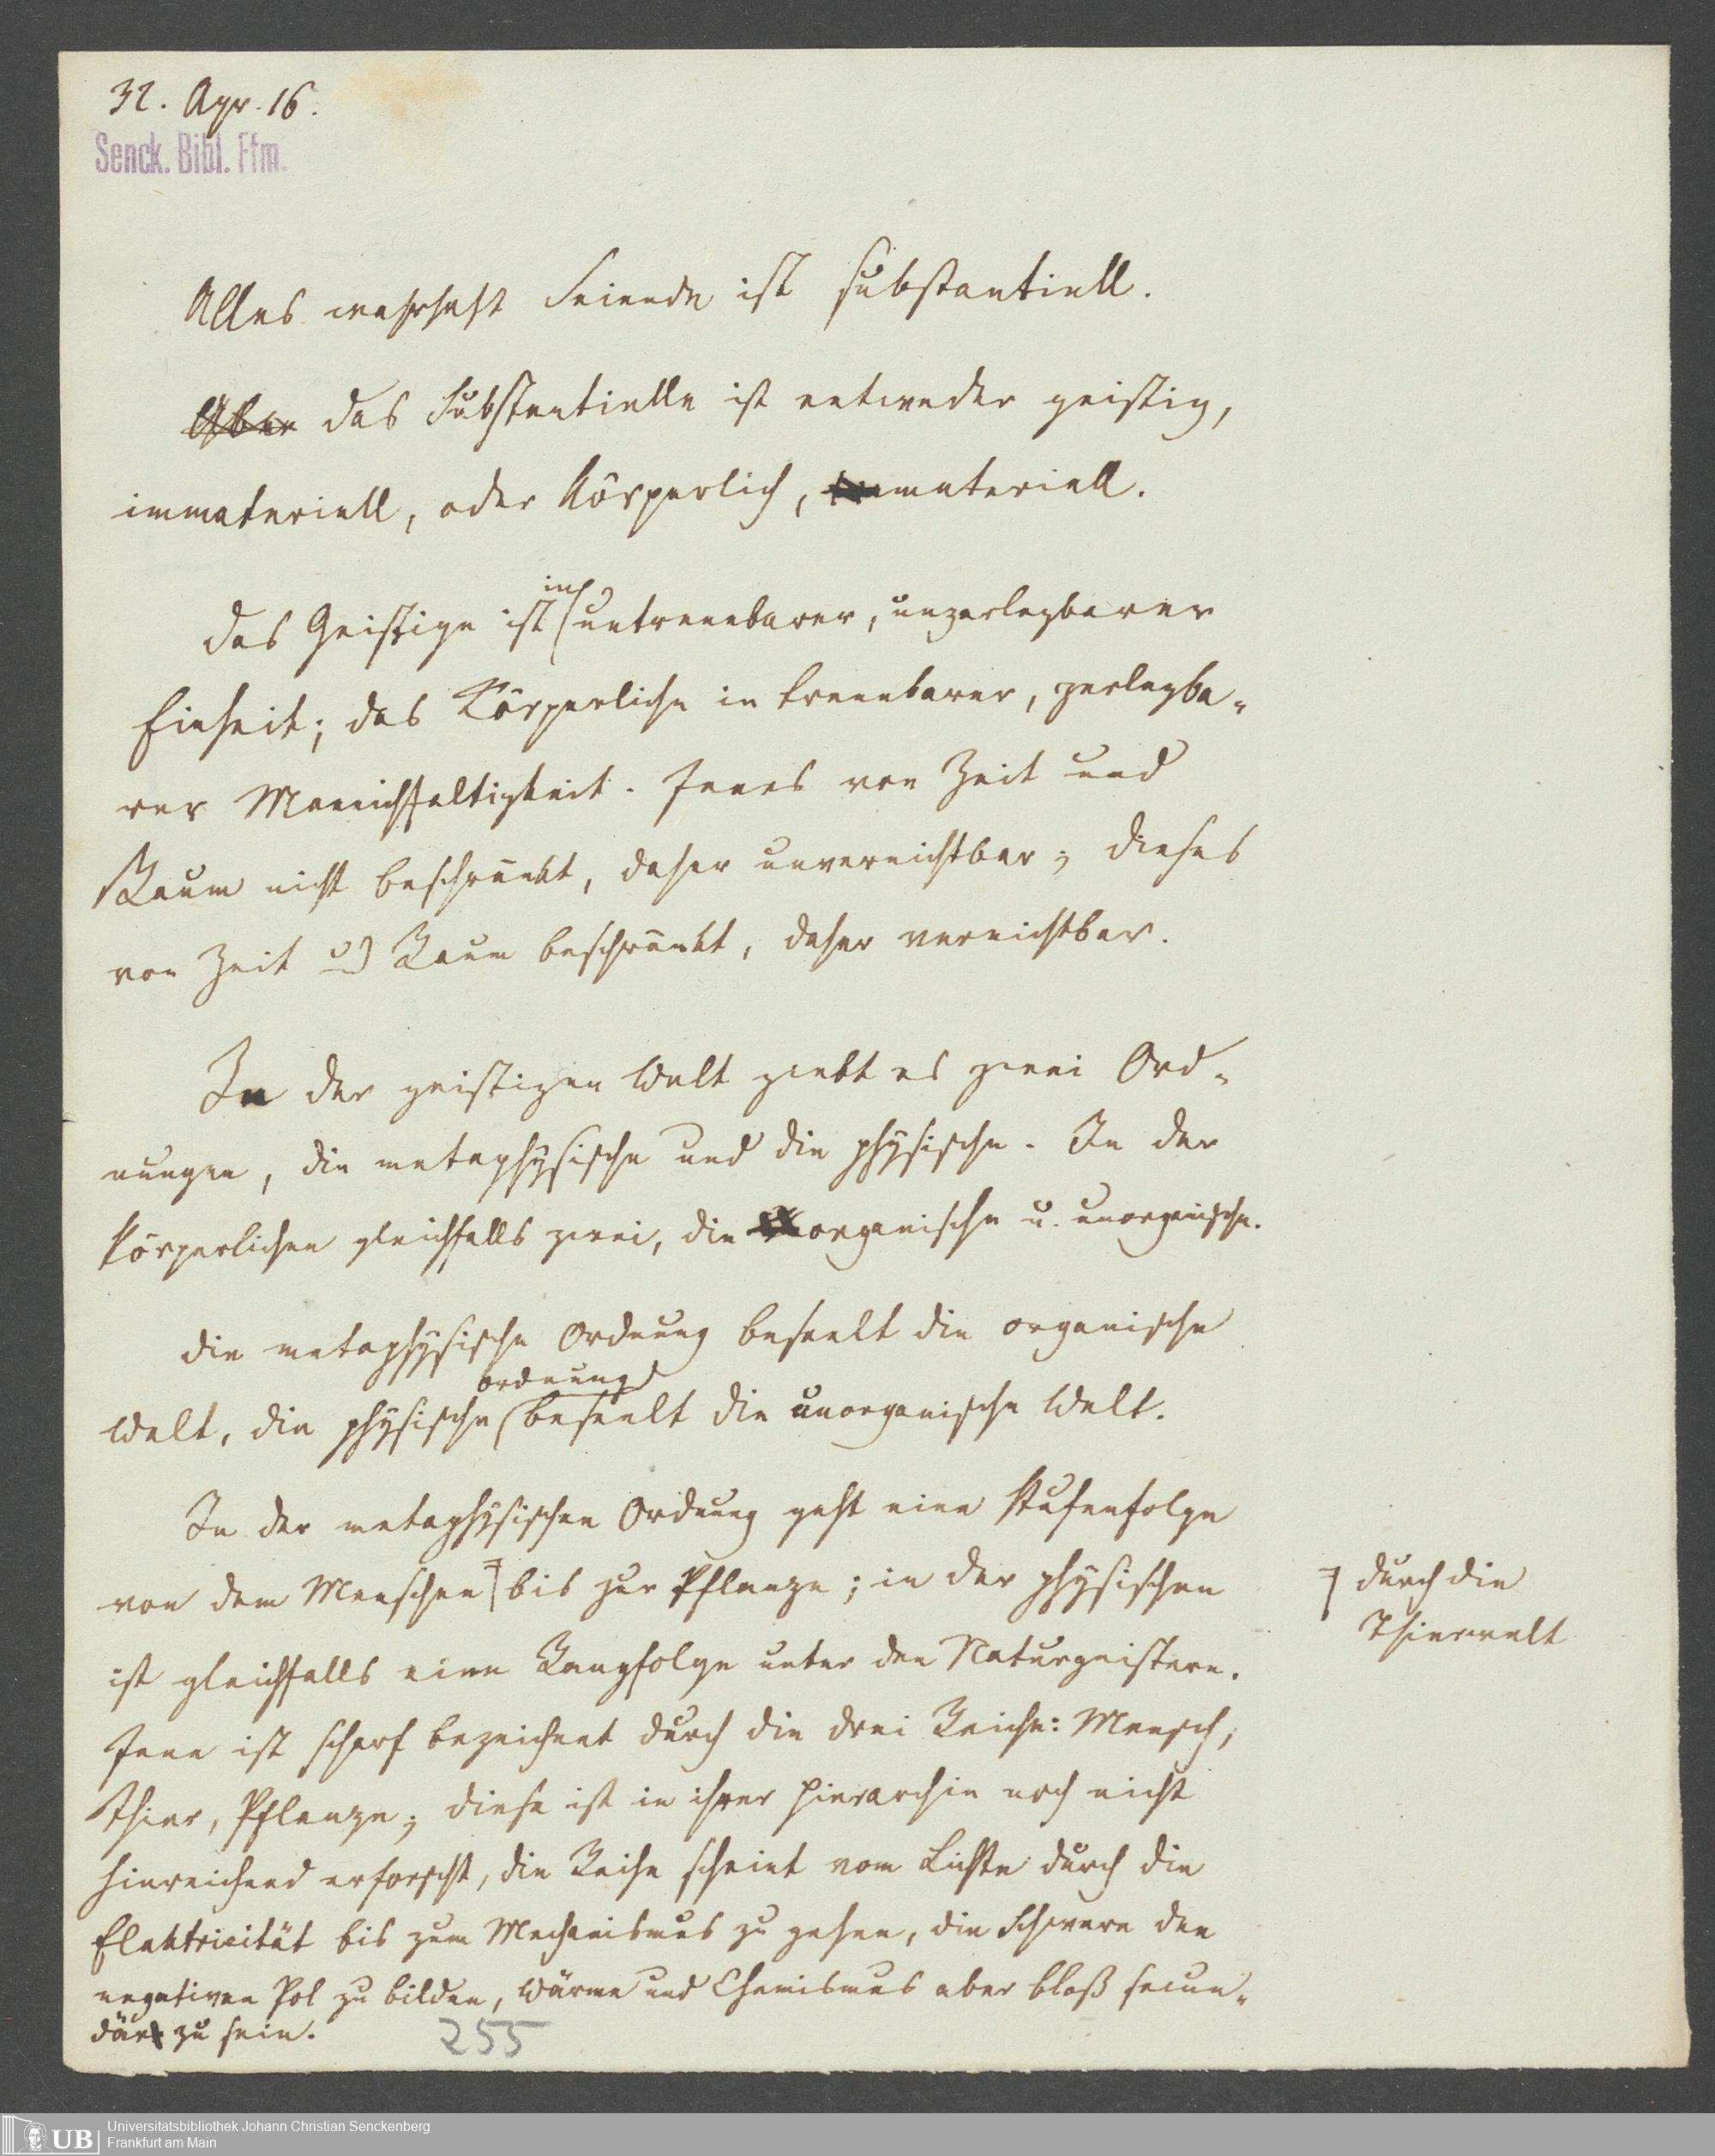 32. Apr. 16.
Senck. Bibl. Ffm.
Alles wahrhaft Seiende ist substantiell.
Aber das Substantielle ist entweder geistig,
immateriell, oder körperlich, materiell.
in
Das Geistige ist untrennbarer, unzerlegbarer
Einheit; das Körperliche in trennbarer, zerlegba-
rer Mannichfaltigkeit. Jenes von Zeit und
Raum nicht beschränkt, daher unvernichtbar; dieses
von Zeit u Raum beschränkt, daher vernichtbar.
In der geistigen Welt giebt es zwei Ord-
nungen, die metaphysische und die physische. In der
körperlichen gleichfalls zwei, die organische u. unorganische.
Die metaphysische Ordnung beseelt die organische
Ordnung
Welt, die physische beseelt die unorganische Welt.
In der metaphysischen Ordnung geht eine Stufenfolge
von dem Menschen bis zur Pflanze; in der physischen
durch die
Thierwelt
ist gleichfalls eine Rangfolge unter den Naturgeistern.
Jene ist scharf bezeichnet durch die drei Reiche: Mensch,
Thier, Pflanze; diese ist in ihrer Hierarchie noch nicht
hinreichend erforscht, die Reihe scheint vom Lichte durch die
Elektricität bis zum Mechanismus zu gehen, die Schwere den
negativen Pol zu bilden, Wärme und Chemismus aber bloß secun-
där zu sein.
255
Universitätsbibliothek Johann Christian Senckenberg
UB Frankfurt am Main